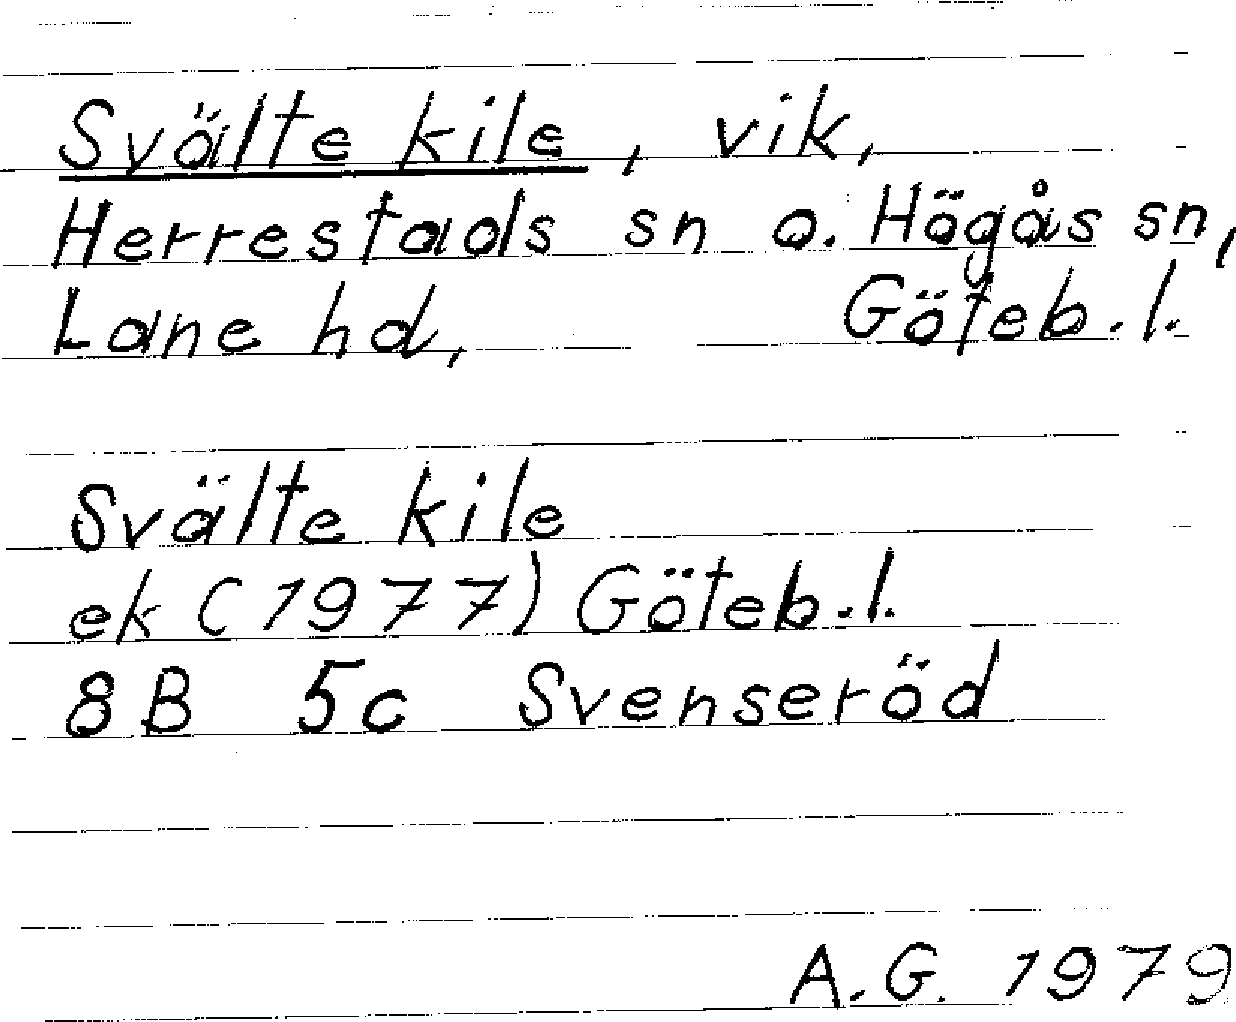 Svälte kile, vik,
Herrestads sn o. Högås sn,
Lane hd, Göteb.l.
Svälte kile
ek (1977) Göteb.l.
8B 5c Svenseröd
A.G. 1979